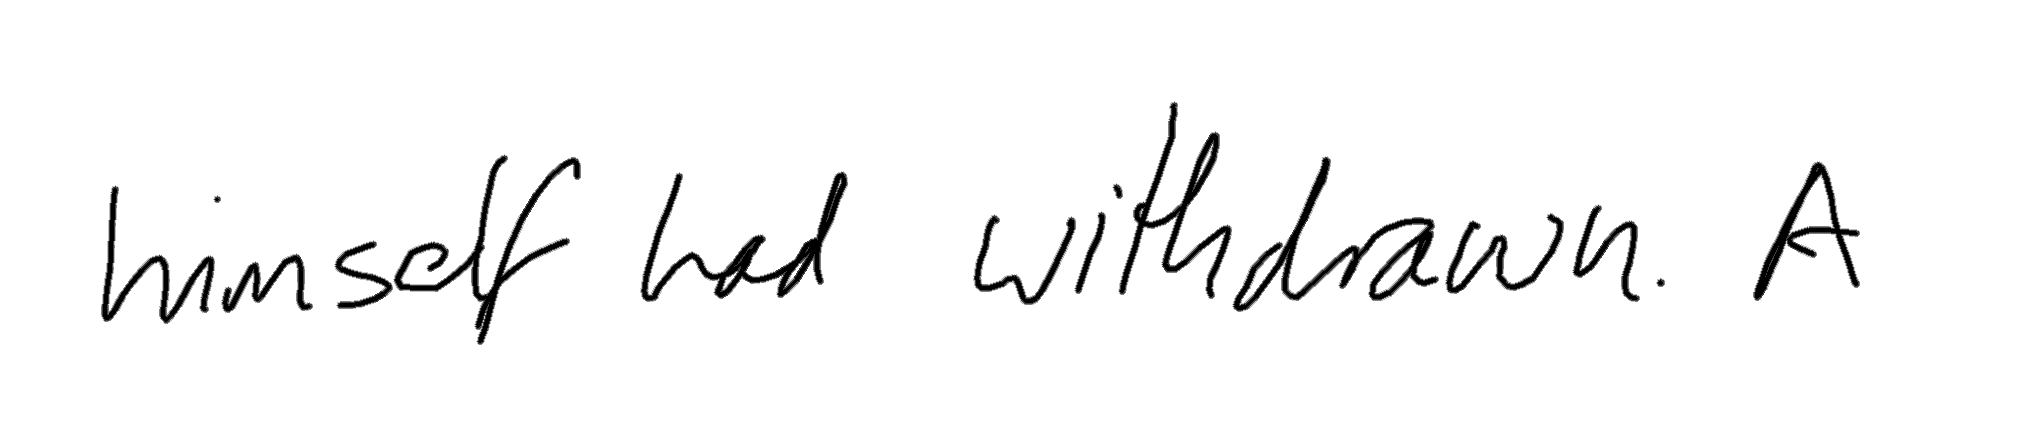 himself had withdrawn. A